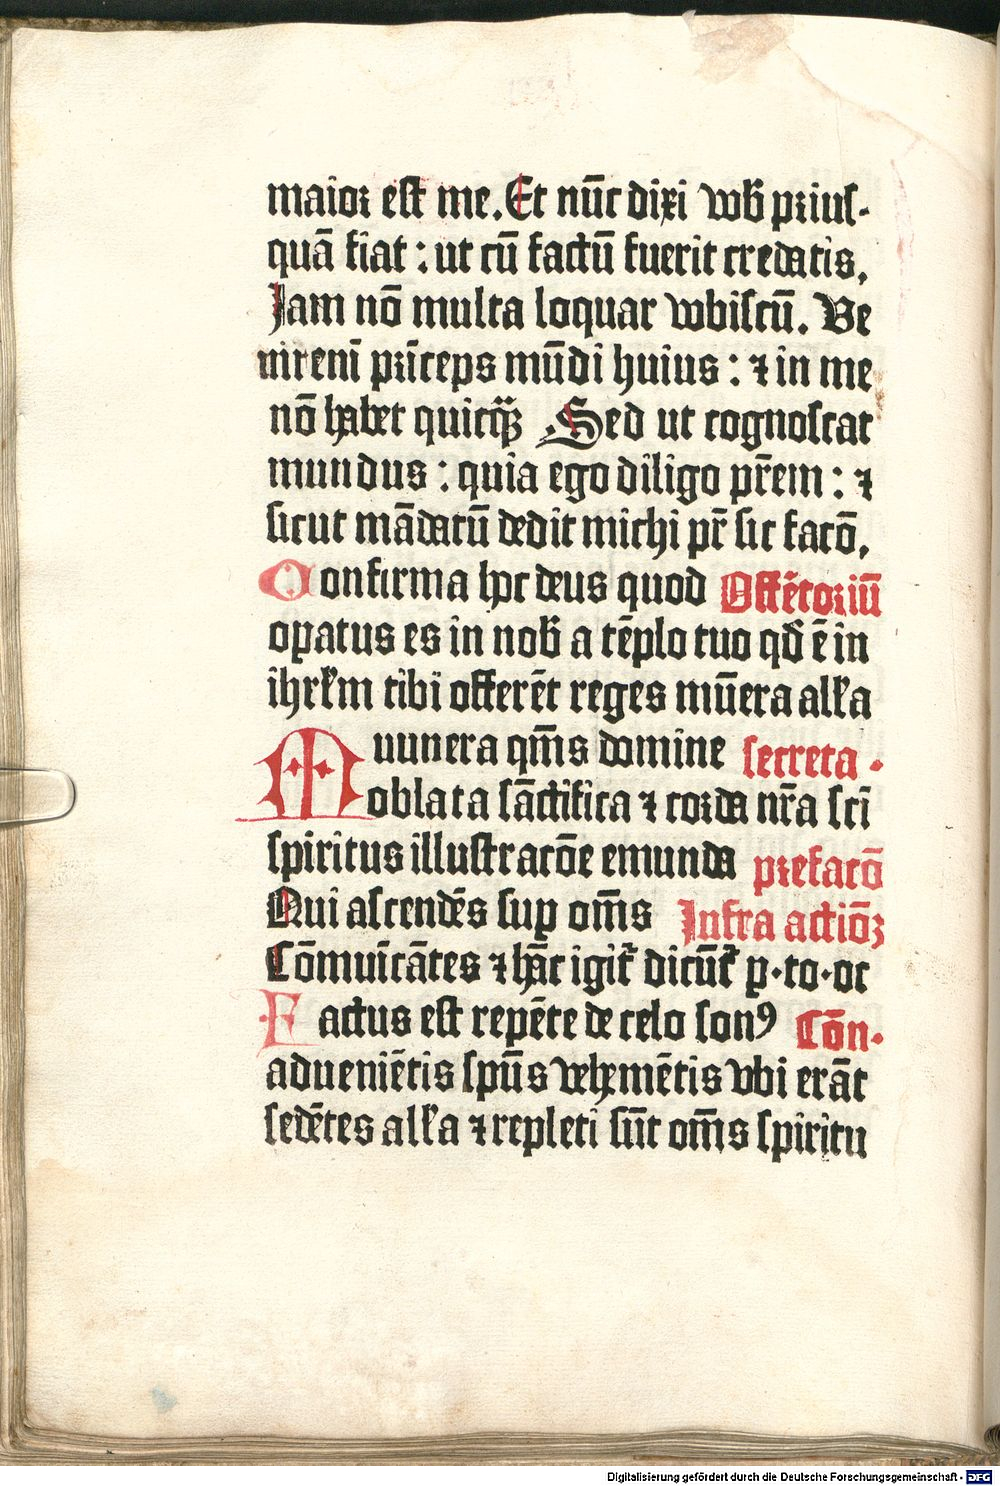 maior est me. Et nūc dixi vob̄ prius-
quā fiat : ut cū factū fuerit credatis.
Jam nō multa loquar vobiscū. Ve
nit eni̅ pri̅ceps mūdi huius : ⁊ in me
nō habet quicqꝫ Sed ut cognoscat
mundus : quia ego diligo pr̄em : ⁊
sicut mādatū dedit michi pr̄ sic facō.
Confirma hoc deus quod Offētoriū
opatus es in nob̄ a tēplo tuo qđ ē in
ihrłm tibi offerēt reges mūera alła
Muunera qm̄s domine secreta.
oblata sāctifica ⁊ corda nr̄a sci̅
spiritus illustracōe emunda prefacō
Qui ascendēs sup om̄s Infra actiōꝫ
Cōmui̅cātes ⁊ hāc igit᷑ dicūt᷑ p·to·oc
Factus est repēte de celo sonꝰ Cōn.
adveniētis spūs vehemētis vbi erāt
sedētes alła ⁊ repleti sūt om̄s spiritu
Digitalisierung gefördert durch die Deutsche Forschungsgemeinschaft - DFG